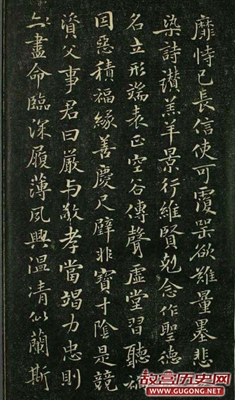 靡恃己長信使可覆器欲難量墨悲
染詩讚羔羊景行維賢剋念作聖德
名立形端表正空谷傳聲虛堂習聽禍
因惡積福緣善慶尺璧非寶寸陰是競
資父事君曰嚴与敬孝當竭力忠則
盡命臨深履薄夙興溫清似蘭斯
故宫历史网
WWW.GUGONG.NET